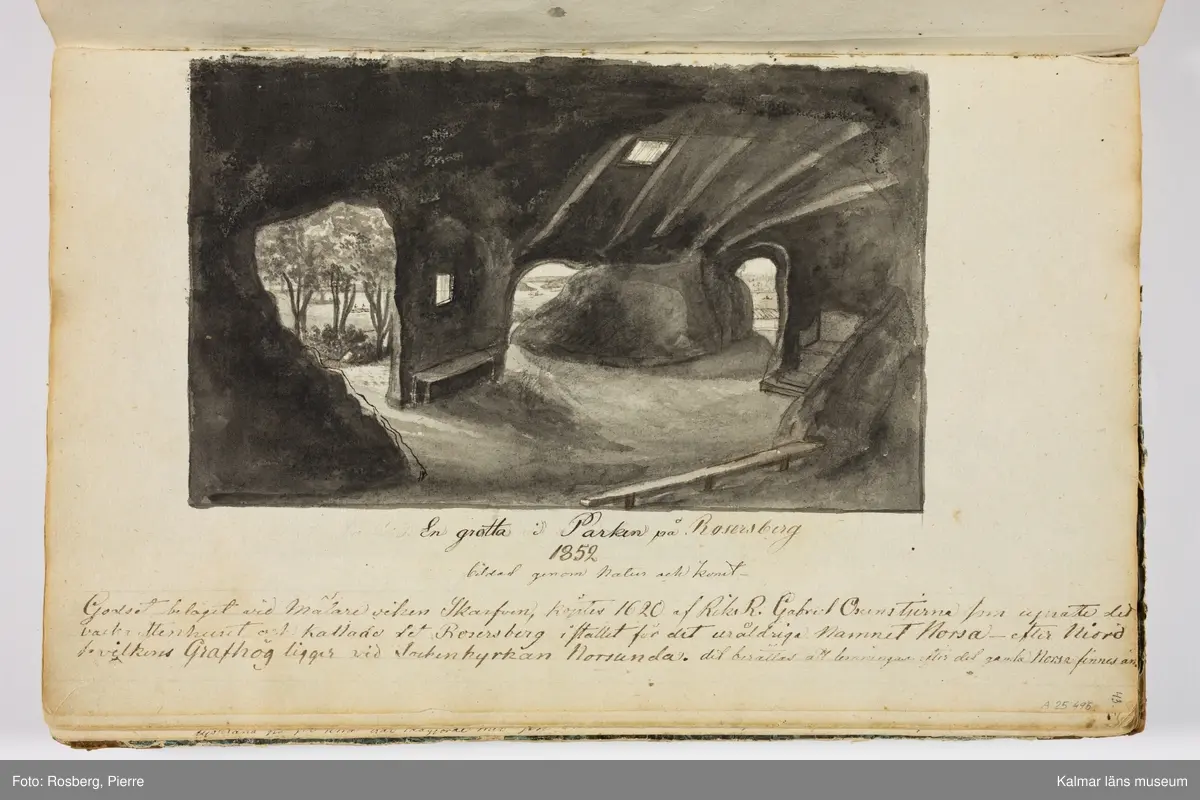 En grotta i Parken på Rosersberg
1852
bildad genom Natur och konst
Godset beläget vid Mälare viken Skarfven, köptes 1620 af Riks R. Gabriel Oxenstjerna som det
vackr och kallade det Rosersberg i stället för det uråldriga Namnet Norsa – efter Niord
hvilkens Grafhög ligger vid Sockenkyrkan Norsunda. det berättas att lemningar efter det gamla Norsa finnes än.
A 25 495
43.
Foto: Rosberg, Pierre
Kalmar läns museum